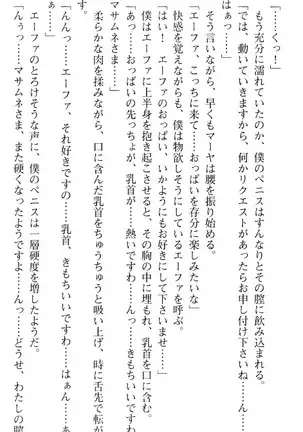 「……くっ！」
もう充分に濡れていたのか、僕のペニスはすんなりとその腔に飲み込まれる。
「では、動いていきますから、何かリクエストがあったらお申し付け下さいね……ん……
はぁっ……」
そう言いながら、早くもマーヤは腰を振り始める。
「エーファ、こっちに来て……おっぱいを存分に楽しみたいな」
快感を覚えながらも、僕は物欲しそうにしているエーファを呼ぶ。
「はい！　エーファのおっぱい、いかようにもお好きにして下さいませ……」
僕はエーファに上半身を抱き起こさせると、その胸の中に埋もれ、乳首を口に含む。
「あっ……おっぱいの先っちょが、乳首が……熱いですわ……んんっ……きもちいいですわ
マサムネさま……」
柔らかな肉を揉みながら、口に含んだ乳首をちゅうちゅうと吸い上げ、時に舌先で転が
「んんっ……エーファ、それ好きですの……乳首、きもちいいですわ……はぁん……あ
ぁ……」
エーファのとろけそうな声に、僕のペニスは一層硬度を増したようだ。
「んぅ……マサムネさま、また硬くなったようですよ……んっ……どうせ、わたしの腔